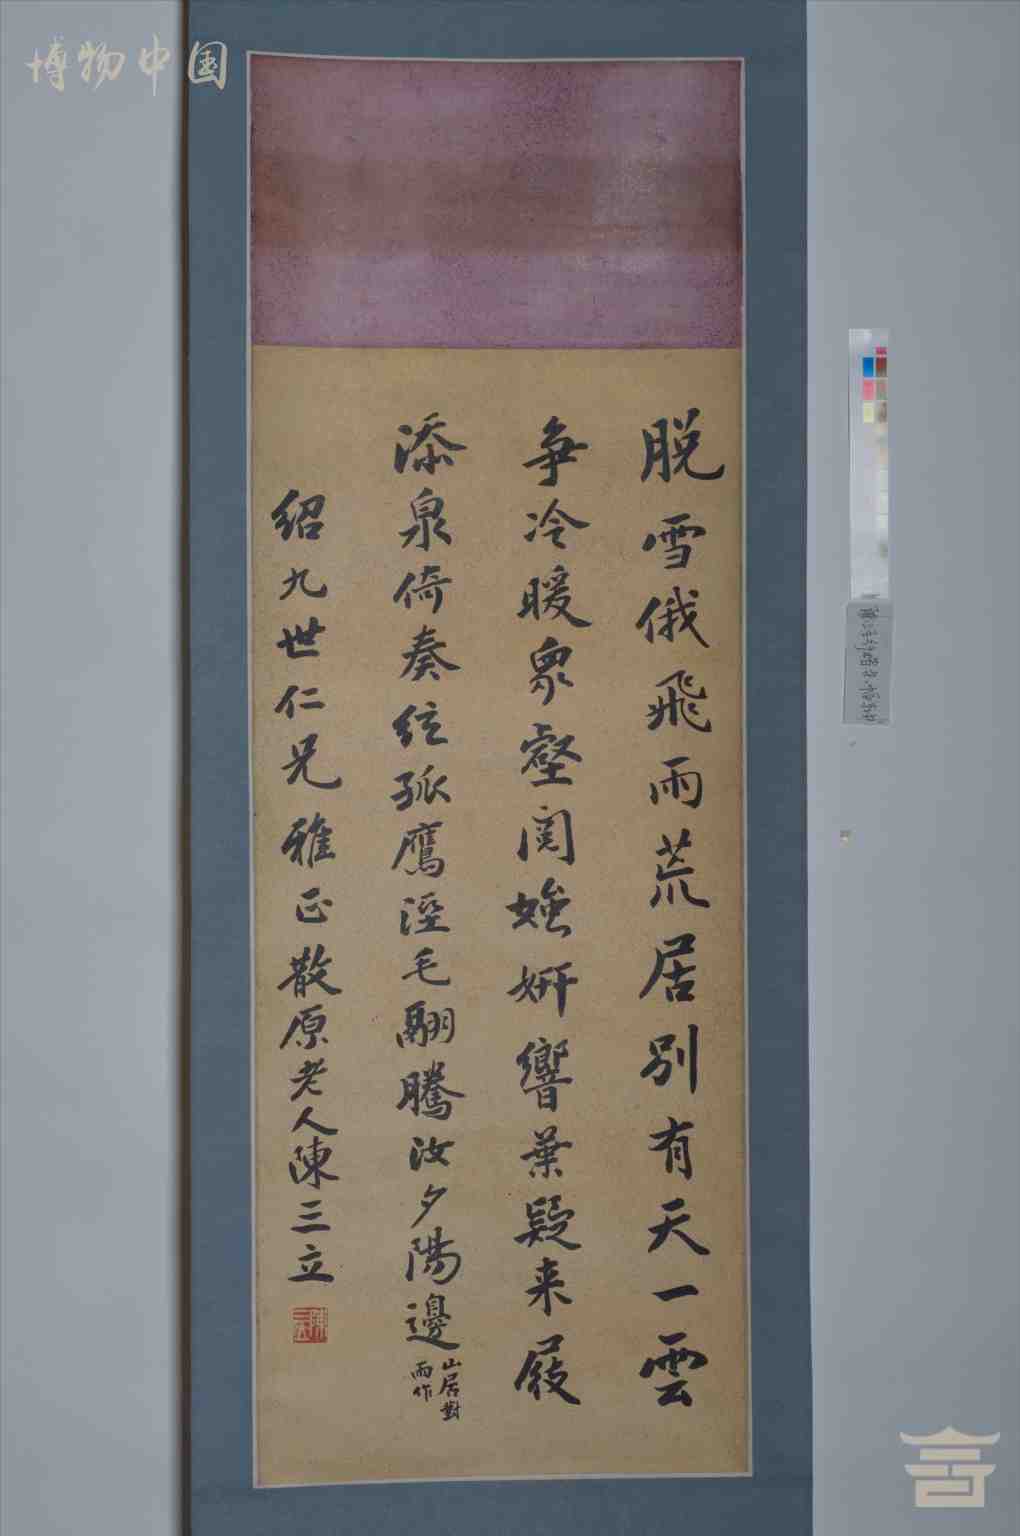 博物中国
脱雪俄飛雨荒居別有天一雲
争冷暖衆壑閙媸妍響葉疑来屐
添泉倚奏絃孤鷹溼毛翮騰汝夕陽邊
山居對
雨作
紹九世仁兄雅正散原老人陳三立
陳三立